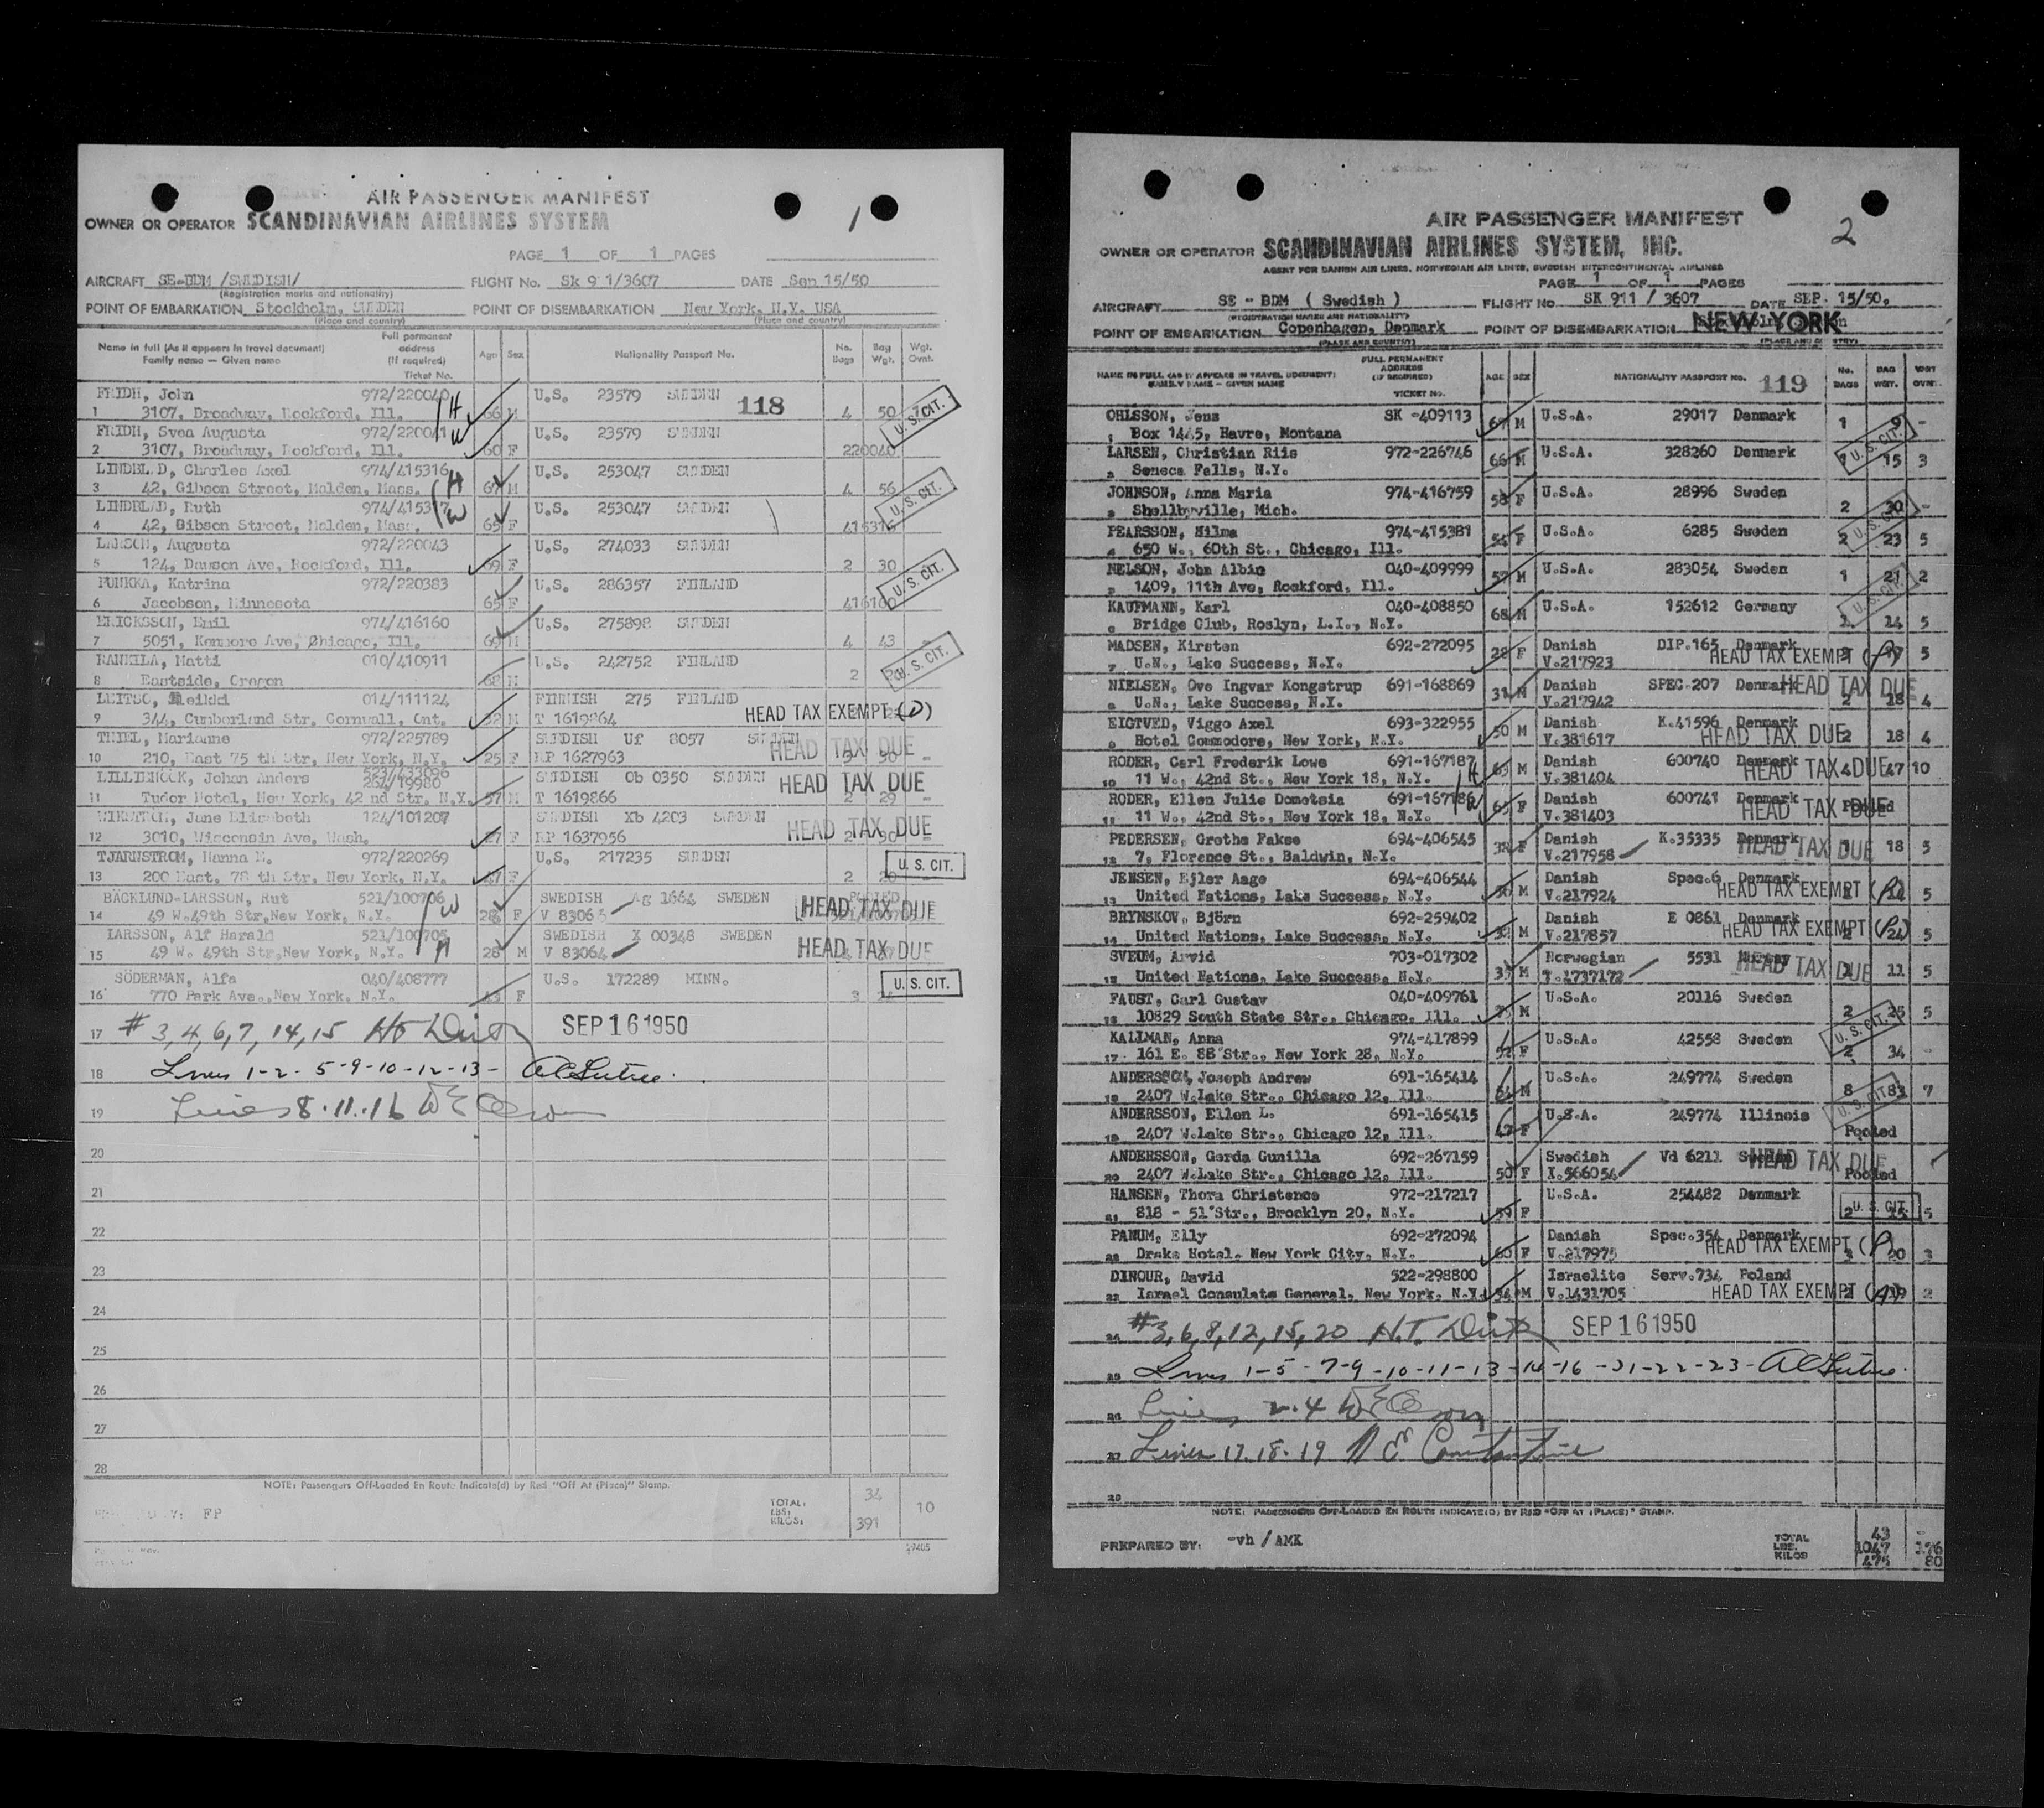 AIR PASSENGER MANIFEST
1
OWNER OR OPERATOR SCANDINAVIAN AIRLINES SYSTEM
PAGE 1 OF 1 PAGES
AIRCRAFT SE-BDM /SWEDISH/ FLIGHT No. Sk 9 1/3607 DATE Sep 15/50
(Registration marks and nationality)
POINT OF EMBARKATION Stockholm, SWEDEN POINT OF DISEMBARKATION New York, N.Y. USA
(Place and country) (Place and country)
Name in full (As it appears in travel document) Family name — Given name Full permanent address (If required) Ticket No. Age Sex Nationality Passport No. No. Bags Bag Wgt. Wgt. Ovnt.
118
FRIDH, John 972/220040 H U.S. 23579 SWEDEN
1 3107, Broadway, Rockford, Ill. 66 M 4 50 U.S. CIT.
FRIDH, Svea Augusta 972/220041 W U.S. 23579 SWEDEN
2 3107, Broadway, Rockford, Ill. 60 F 220040
LINDBLAD, Charles Axel 974/415316 H U.S. 253047 SWEDEN
3 42, Gibson Street, Malden, Mass. 67 M 4 56 U.S. CIT.
LINDBLAD, Ruth 974/415317 W U.S. 253047 SWEDEN
4 42, Gibson Street, Malden, Mass. 65 F 415316
LARSON, Augusta 972/220043 U.S. 274033 SWEDEN
5 124, Dawson Ave, Rockford, Ill. 69 F 2 30
PUNKKA, Katrina 972/220383 U.S. 286357 FINLAND U.S. CIT.
6 Jacobson, Minnesota 65 F 416160
ERICKSSON, Emil 974/416160 U.S. 275898 SWEDEN
7 5051, Kenmore Ave, Chicago, Ill. 69 M 4 43 -
RANKILA, Matti 010/410911 U.S. 242752 FINLAND U.S. CIT.
8 Eastside, Oregon 68 M 2
LEITSO, Heikki 014/111124 FINNISH 275 FINLAND
9 344, Cumberland Str, Cornwall, Ont. 52 M T 1619864 HEAD TAX EXEMPT (D)
THIEL, Marianne 972/225789 SWEDISH Uf 8057 SWEDEN
10 210, East 75 th Str, New York, N.Y. 25 F RP 1627963 HEAD TAX DUE
LILLIEHOOK, Johan Anders 523/433096 264/19980 SWEDISH Ob 0350 SWEDEN
11 Tudor Hotel, New York, 42 nd Str, N.Y. 57 M T 1619866 HEAD TAX DUE 2 29 -
WIKSTROM, Jane Elisabeth 124/101207 SWEDISH Xb 4203 SWEDEN
12 3010, Wisconsin Ave, Wash. 27 F RP 1637956 HEAD TAX DUE 2 30
TJARNSTROM, Hanna E. 972/220269 U.S. 217235 SWEDEN U.S. CIT.
13 200 East, 78 th Str, New York, N.Y. 47 F 2 20
BÄCKLUND-LARSSON, Rut 521/100706 W SWEDISH Ag 1664 SWEDEN
14 49 W.49th Str,New York, N.Y. 28 F V 83065 HEAD TAX DUE
LARSSON, Alf Harald 521/100705 H SWEDISH X 00348 SWEDEN
15 49 W. 49th Str,New York, N.Y. 28 M V 83064 HEAD TAX DUE
SÖDERMAN, Alfa 040/408777 U.S. 172289 MINN. U.S. CIT.
16 770 Park Ave.,New York, N.Y. F 3
17 # 3, 4, 6, 7, 14, 15 SEP 16 1950
18 Lines 1-2-5-9-10-12-13-
19 Lines 8.11.16
20
21
22
23
24
25
26
27
28
NOTE: Passengers Off-Loaded En Route Indicate(d) by Red "Off At (Place)" Stamp.
FP TOTAL: LBS: KILOS: 34 391 10
29405
AIR PASSENGER MANIFEST
2
OWNER OR OPERATOR SCANDINAVIAN AIRLINES SYSTEM, INC.
AGENT FOR DANISH AIR LINES, NORWEGIAN AIR LINES, SWEDISH INTERCONTINENTAL AIRLINES
PAGE 1 OF 1 PAGES
AIRCRAFT SE - BDM ( Swedish ) FLIGHT NO. SK 911 / 3607 DATE SEP. 15/50,
(REGISTRATION MARKS AND NATIONALITY)
POINT OF EMBARKATION Copenhagen, Denmark POINT OF DISEMBARKATION NEW YORK
(PLACE AND COUNTRY) (PLACE AND COUNTRY)
NAME IN FULL (AS IT APPEARS IN TRAVEL DOCUMENT) FAMILY NAME - GIVEN NAME FULL PERMANENT ADDRESS (IF REQUIRED) TICKET NO. AGE SEX NATIONALITY PASSPORT NO. 119 NO. BAGS BAG WGT. WGT OVNT.
OHLSSON, Jens SK -409113 U.S.A. 29017 Denmark
1 Box 1445, Havre, Montana 67 M 1 9 -
LARSEN, Christian Riis 972-226746 U.S.A. 328260 Denmark U.S. CIT.
2 Seneca Falls, N.Y. 66 M 1 15 3
JOHNSON, Anna Maria 974-416759 U.S.A. 28996 Sweden
3 Shelbyville, Mich. 58 F 2 30 -
PEARSSON, Hilma 974-415381 U.S.A. 6285 Sweden U.S. CIT.
4 650 W., 60th St., Chicago, Ill. 54 F 2 23 5
NELSON, John Albin 040-409999 U.S.A. 283054 Sweden
5 1409, 11th Ave, Rockford, Ill. 57 M 1 21 2
KAUFMANN, Karl 040-408850 U.S.A. 152612 Germany U.S. CIT.
6 Bridge Club, Roslyn, L.I., N.Y. 68 M 1 14 5
MADSEN, Kirsten 692-272095 Danish DIP.165 Denmark
7 U.N., Lake Success, N.Y. 28 F V.217923 HEAD TAX EXEMPT 5
NIELSEN, Ove Ingvar Kongstrup 691-168869 Danish SPEC.207 Denmark HEAD TAX DUE
8 U.N., Lake Success, N.Y. 31 M V.217942 2 18 4
EIGTVED, Viggo Axel 693-322955 Danish K.41596 Denmark
9 Hotel Commodore, New York, N.Y. 50 M V.381617 HEAD TAX DUE 2 18 4
RODER, Carl Frederik Lowe 691-167187 H Danish 600740 Denmark
10 11 W., 42nd St., New York 18, N.Y. 63 M V.381404 HEAD TAX DUE 4 47 10
RODER, Ellen Julie Dometsia 691-167186 W Danish 600741 Denmark
11 11 W., 42nd St., New York 18, N.Y. 65 F V.381403 HEAD TAX DUE Pooled
PEDERSEN, Grethe Fakse 694-406545 Danish K.35335 Denmark
12 7, Florence St., Baldwin, N.Y. 38 F V.217958 HEAD TAX DUE 18 5
JENSEN, Ejler Aage 694-406544 Danish Spec.6 Denmark
13 United Nations, Lake Success, N.Y. M V.217924 HEAD TAX EXEMPT 5
BRYNSKOV, Björn 692-259402 Danish E 0861 Denmark
14 United Nations, Lake Success, N.Y. M V.217857 HEAD TAX EXEMPT 24 5
SVEUM, Arvid 703-017302 Norwegian 5531 Norway
15 United Nations, Lake Success, N.Y. M T.1737172 HEAD TAX DUE 11 5
FAUST, Carl Gustav 040-409761 U.S.A. 20116 Sweden
16 10829 South State Str., Chicago, Ill. M 2 25 5
KALLMAN, Anna 974-417899 U.S.A. 42558 Sweden U.S. CIT.
17 161 E. 88 Str., New York 28, N.Y. 52 F 2 34 -
ANDERSSON, Joseph Andrew 691-165414 U.S.A. 249774 Sweden
18 2407 W.Lake Str., Chicago 12, Ill. 54 M 8 83 7
ANDERSSON, Ellen L. 691-165415 U.S.A. 249774 Illinois U.S. CIT.
19 2407 W.Lake Str., Chicago 12, Ill. 47 F Pooled
ANDERSSON, Gerda Gunilla 692-267159 Swedish Vd 6211 Sweden HEAD TAX DUE
20 2407 W.Lake Str., Chicago 12, Ill. 50 F X.566054 Pooled
HANSEN, Thora Christence 972-217217 U.S.A. 254482 Denmark
21 818 - 51 Str., Brooklyn 20, N.Y. 59 F 2 U.S. CIT. 5
PANUM, Elly 692-272094 Danish Spec.354 Denmark
22 Drake Hotel, New York City, N.Y. 60 F V.217975 HEAD TAX EXEMPT 20 3
DINOUR, David 522-298800 Israelite Serv.734 Poland
23 Israel Consulate General, New York, N.Y. 54 M V.1431705 HEAD TAX EXEMPT 19 2
24 #3,6,8,12,15,20 H.T. SEP 16 1950
25 Lines 1-5-7-9-10-11-13-14-16-21-22-23-
26 Lines 2.4
27 Lines 17.18.19 N E Constantine
28
NOTE: PASSENGERS OFF-LOADED EN ROUTE INDICATE(D) BY RED "OFF AT (PLACE)" STAMP.
PREPARED BY: -vh / AMK TOTAL LBS. KILOS 43 1047 475 - 176 80